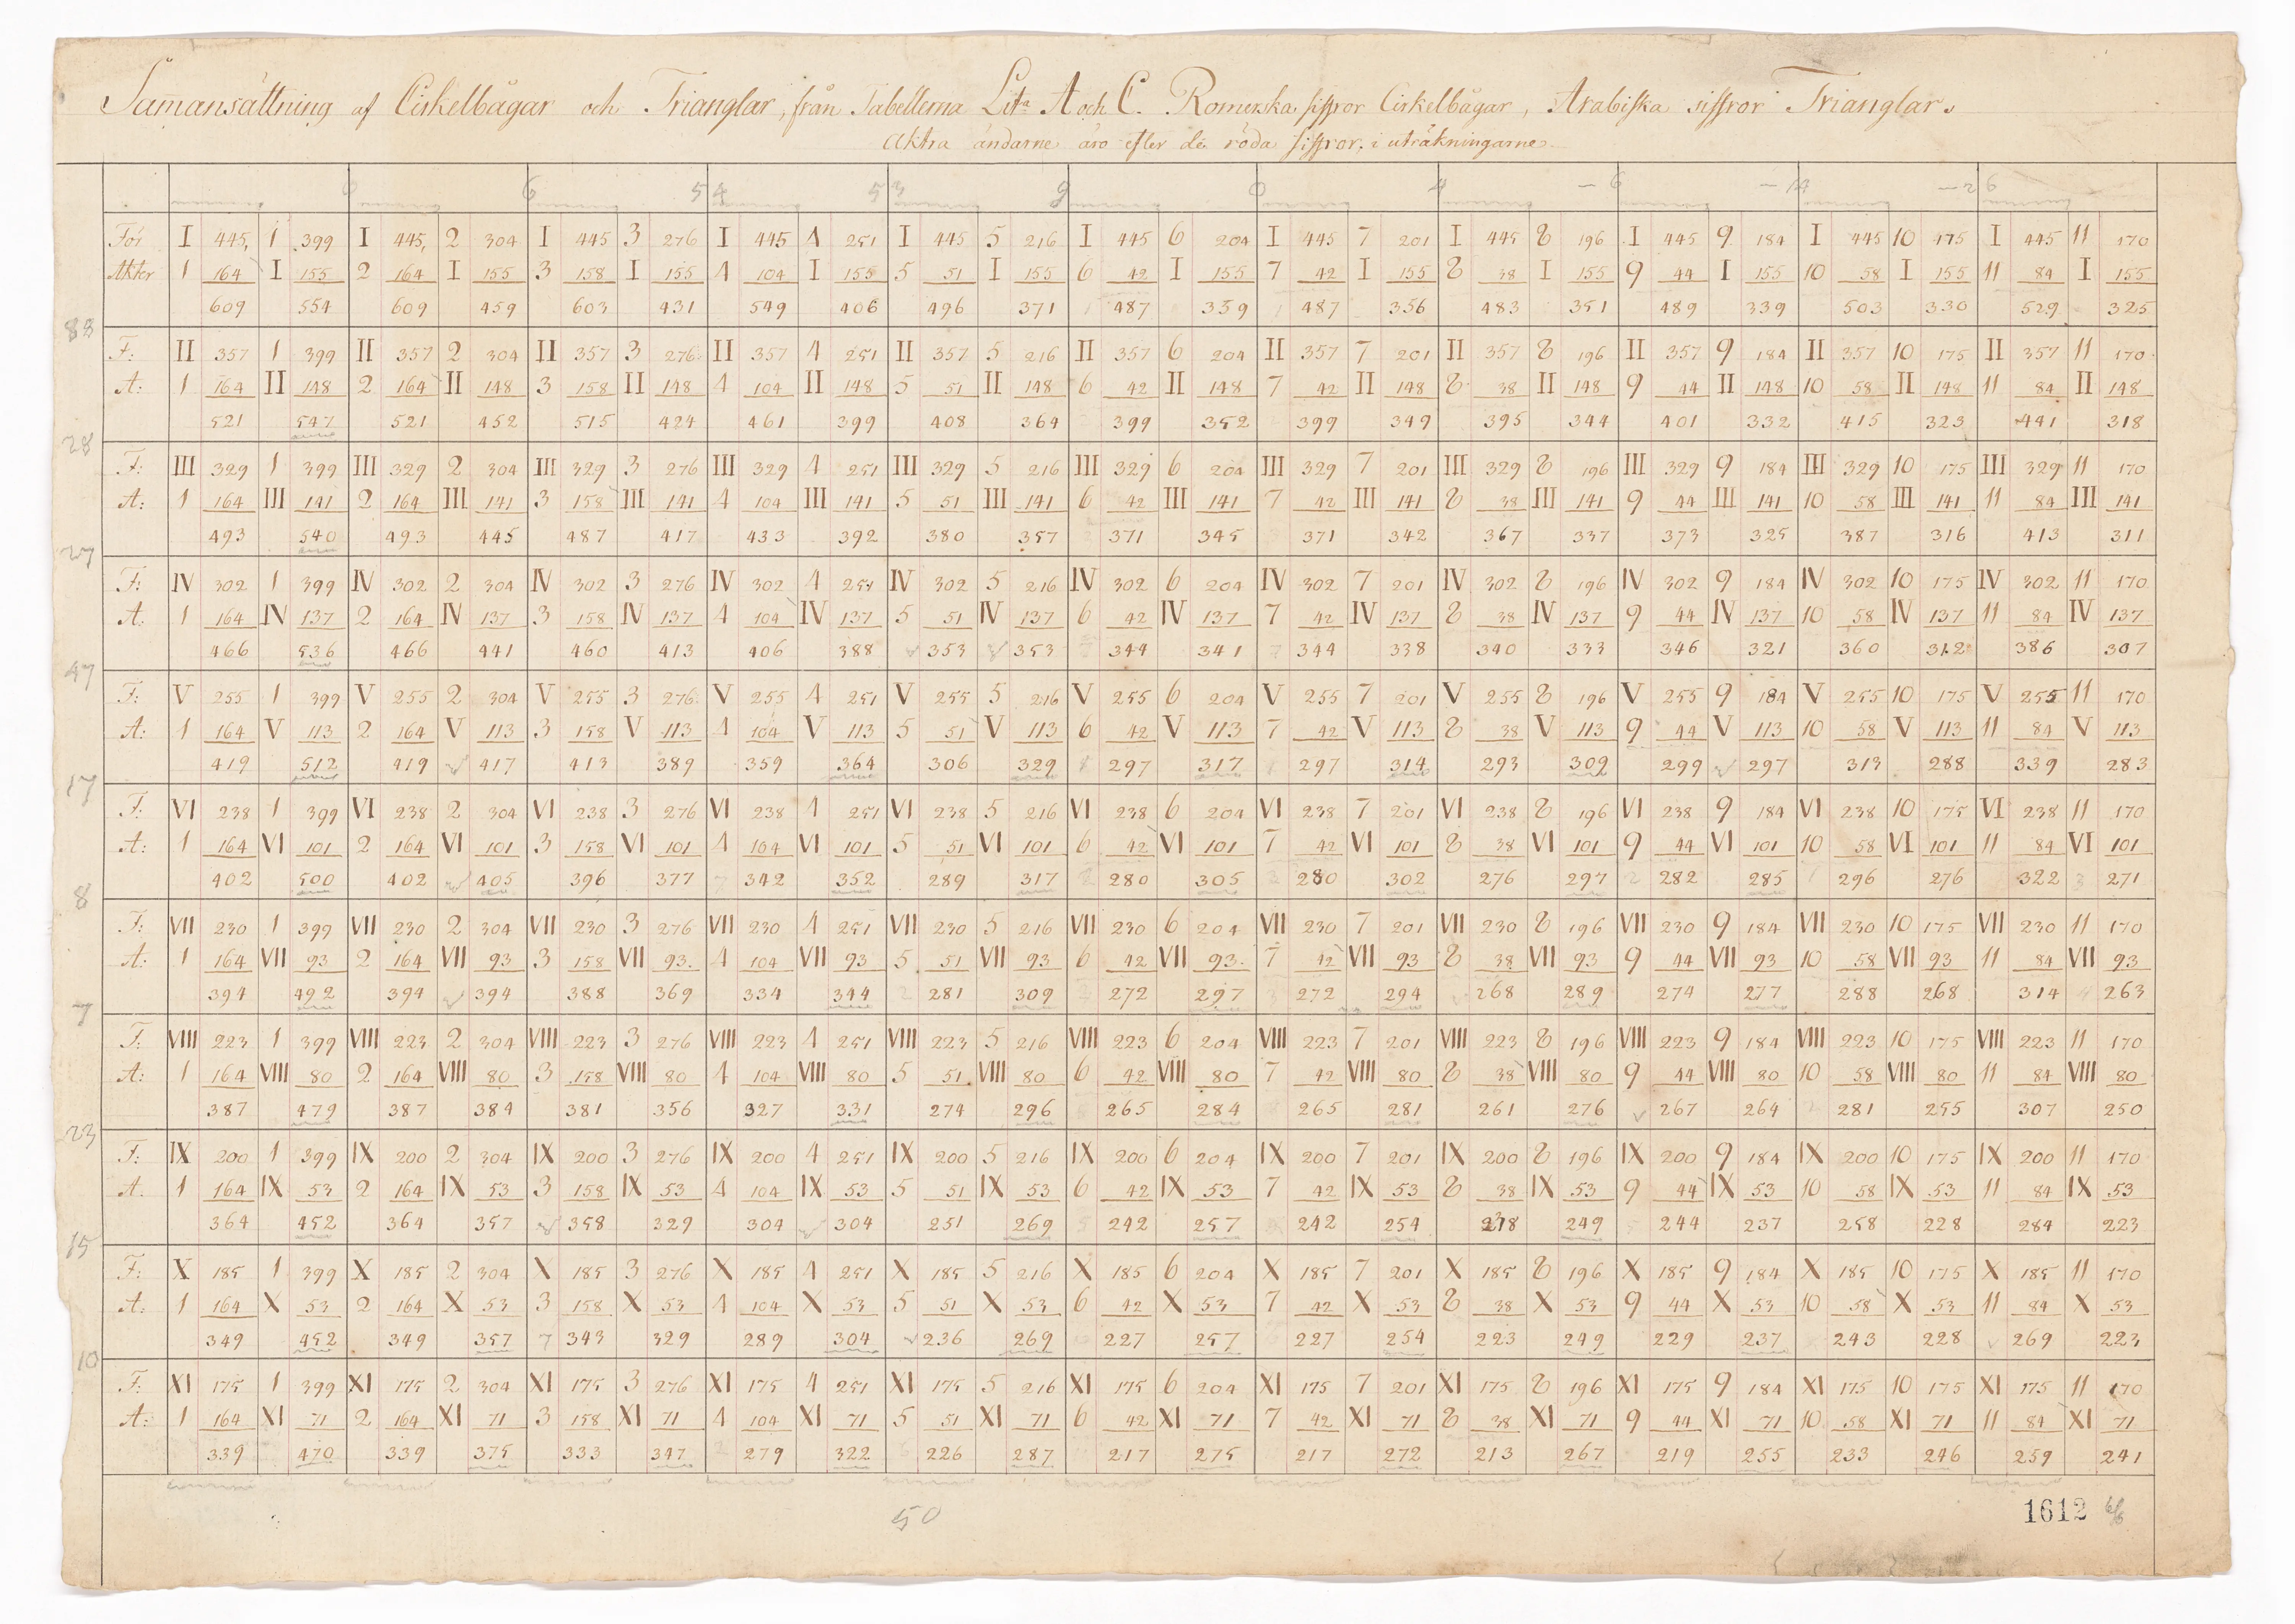 Sam̄ansättning af Cirkelbågar och Trianglar, från Tabellerna Litª A och C. Romerska siffror Cirkelbågar, Arabiska siffror Trianglar.
Aktra ändarne äro efter de röda siffror, i uträkningarne.
0 6 54 53 9 0 4 –6 –14 –26
För I 445, 1 399 I 445, 2 304 I 445 3 276 I 445 4 251 I 445 5 216 I 445 6 204 I 445 7 201 I 445 8 196 I 445 9 184 I 445 10 175 I 445 11 170
Akter 1 164 I 155 2 164 I 155 3 158 I 155 4 104 I 155 5 51 I 155 6 42 I 155 7 42 I 155 8 38 I 155 9 44 I 155 10 58 I 155 11 84 I 155
609 554 609 459 603 431 549 406 496 371 487 359 487 356 483 351 489 339 503 330 529 325
88
F: II 357 1 399 II 357 2 304 II 357 3 276 II 357 4 251 II 357 5 216 II 357 6 204 II 357 7 201 II 357 8 196 II 357 9 184 II 357 10 175 II 357 11 170
A: 1 164 II 148 2 164 II 148 3 158 II 148 4 104 II 148 5 51 II 148 6 42 II 148 7 42 II 148 8 38 II 148 9 44 II 148 10 58 II 148 11 84 II 148
521 547 521 452 515 424 461 399 408 364 399 352 399 349 395 344 401 332 415 323 441 318
28
F: III 329 1 399 III 329 2 304 III 329 3 276 III 329 4 251 III 329 5 216 III 329 6 204 III 329 7 201 III 329 8 196 III 329 9 184 III 329 10 175 III 329 11 170
A: 1 164 III 141 2 164 III 141 3 158 III 141 4 104 III 141 5 51 III 141 6 42 III 141 7 42 III 141 8 38 III 141 9 44 III 141 10 58 III 141 11 84 III 141
493 540 493 445 487 417 433 392 380 357 371 345 371 342 367 337 373 325 387 316 413 311
27
F: IV 302 1 399 IV 302 2 304 IV 302 3 276 IV 302 4 251 IV 302 5 216 IV 302 6 204 IV 302 7 201 IV 302 8 196 IV 302 9 184 IV 302 10 175 IV 302 11 170
A: 1 164 IV 137 2 164 IV 137 3 158 IV 137 4 104 IV 137 5 51 IV 137 6 42 IV 137 7 42 IV 137 8 38 IV 137 9 44 IV 137 10 58 IV 137 11 84 IV 137
466 536 466 441 460 413 406 388 353 353 344 341 344 338 340 333 346 321 360 312 386 307
47
F: V 255 1 399 V 255 2 304 V 255 3 276 V 255 4 251 V 255 5 216 V 255 6 204 V 255 7 201 V 255 8 196 V 255 9 184 V 255 10 175 V 255 11 170
A: 1 164 V 113 2 164 V 113 3 158 V 113 4 104 V 113 5 51 V 113 6 42 V 113 7 42 V 113 8 38 V 113 9 44 V 113 10 58 V 113 11 84 V 113
419 512 419 417 413 389 359 364 306 329 297 317 297 314 293 309 299 297 313 288 339 283
17
F: VI 238 1 399 VI 238 2 304 VI 238 3 276 VI 238 4 251 VI 238 5 216 VI 238 6 204 VI 238 7 201 VI 238 8 196 VI 238 9 184 VI 238 10 175 VI 238 11 170
A: 1 164 VI 101 2 164 VI 101 3 158 VI 101 4 104 VI 101 5 51 VI 101 6 42 VI 101 7 42 VI 101 8 38 VI 101 9 44 VI 101 10 58 VI 101 11 84 VI 101
402 500 402 405 396 377 342 352 289 317 280 305 280 302 276 297 282 285 296 276 322 271
8
F: VII 230 1 399 VII 230 2 304 VII 230 3 276 VII 230 4 251 VII 230 5 216 VII 230 6 204 VII 230 7 201 VII 230 8 196 VII 230 9 184 VII 230 10 175 VII 230 11 170
A: 1 164 VII 93 2 164 VII 93 3 158 VII 93 4 104 VII 93 5 51 VII 93 6 42 VII 93 7 42 VII 93 8 38 VII 93 9 44 VII 93 10 58 VII 93 11 84 VII 93
394 492 394 394 388 369 334 344 281 309 272 297 272 294 268 289 274 277 288 268 314 263
7
F: VIII 223 1 399 VIII 223 2 304 VIII 223 3 276 VIII 223 4 251 VIII 223 5 216 VIII 223 6 204 VIII 223 7 201 VIII 223 8 196 VIII 223 9 184 VIII 223 10 175 VIII 223 11 170
A: 1 164 VIII 80 2 164 VIII 80 3 158 VIII 80 4 104 VIII 80 5 51 VIII 80 6 42 VIII 80 7 42 VIII 80 8 38 VIII 80 9 44 VIII 80 10 58 VIII 80 11 84 VIII 80
387 479 387 384 381 356 327 331 274 296 265 284 265 281 261 276 267 264 281 255 307 250
23
F: IX 200 1 399 IX 200 2 304 IX 200 3 276 IX 200 4 251 IX 200 5 216 IX 200 6 204 IX 200 7 201 IX 200 8 196 IX 200 9 184 IX 200 10 175 IX 200 11 170
A. 1 164 IX 53 2 164 IX 53 3 158 IX 53 4 104 IX 53 5 51 IX 53 6 42 IX 53 7 42 IX 53 8 38 IX 53 9 44 IX 53 10 58 IX 53 11 84 IX 53
364 452 364 357 358 329 304 304 251 269 242 257 242 254 238 249 244 237 258 228 284 223
15
F: X 185 1 399 X 185 2 304 X 185 3 276 X 185 4 251 X 185 5 216 X 185 6 204 X 185 7 201 X 185 8 196 X 185 9 184 X 185 10 175 X 185 11 170
A: 1 164 X 53 2 164 X 53 3 158 X 53 4 104 X 53 5 51 X 53 6 42 X 53 7 42 X 53 8 38 X 53 9 44 X 53 10 58 X 53 11 84 X 53
349 452 349 357 343 329 289 304 236 269 227 257 227 254 223 249 229 237 243 228 269 223
10
F: XI 175 1 399 XI 175 2 304 XI 175 3 276 XI 175 4 251 XI 175 5 216 XI 175 6 204 XI 175 7 201 XI 175 8 196 XI 175 9 184 XI 175 10 175 XI 175 11 170
A: 1 164 XI 71 2 164 XI 71 3 158 XI 71 4 104 XI 71 5 51 XI 71 6 42 XI 71 7 42 XI 71 8 38 XI 71 9 44 XI 71 10 58 XI 71 11 84 XI 71
339 470 339 375 333 347 279 322 226 287 217 275 217 272 213 267 219 255 233 246 259 241
50
1612